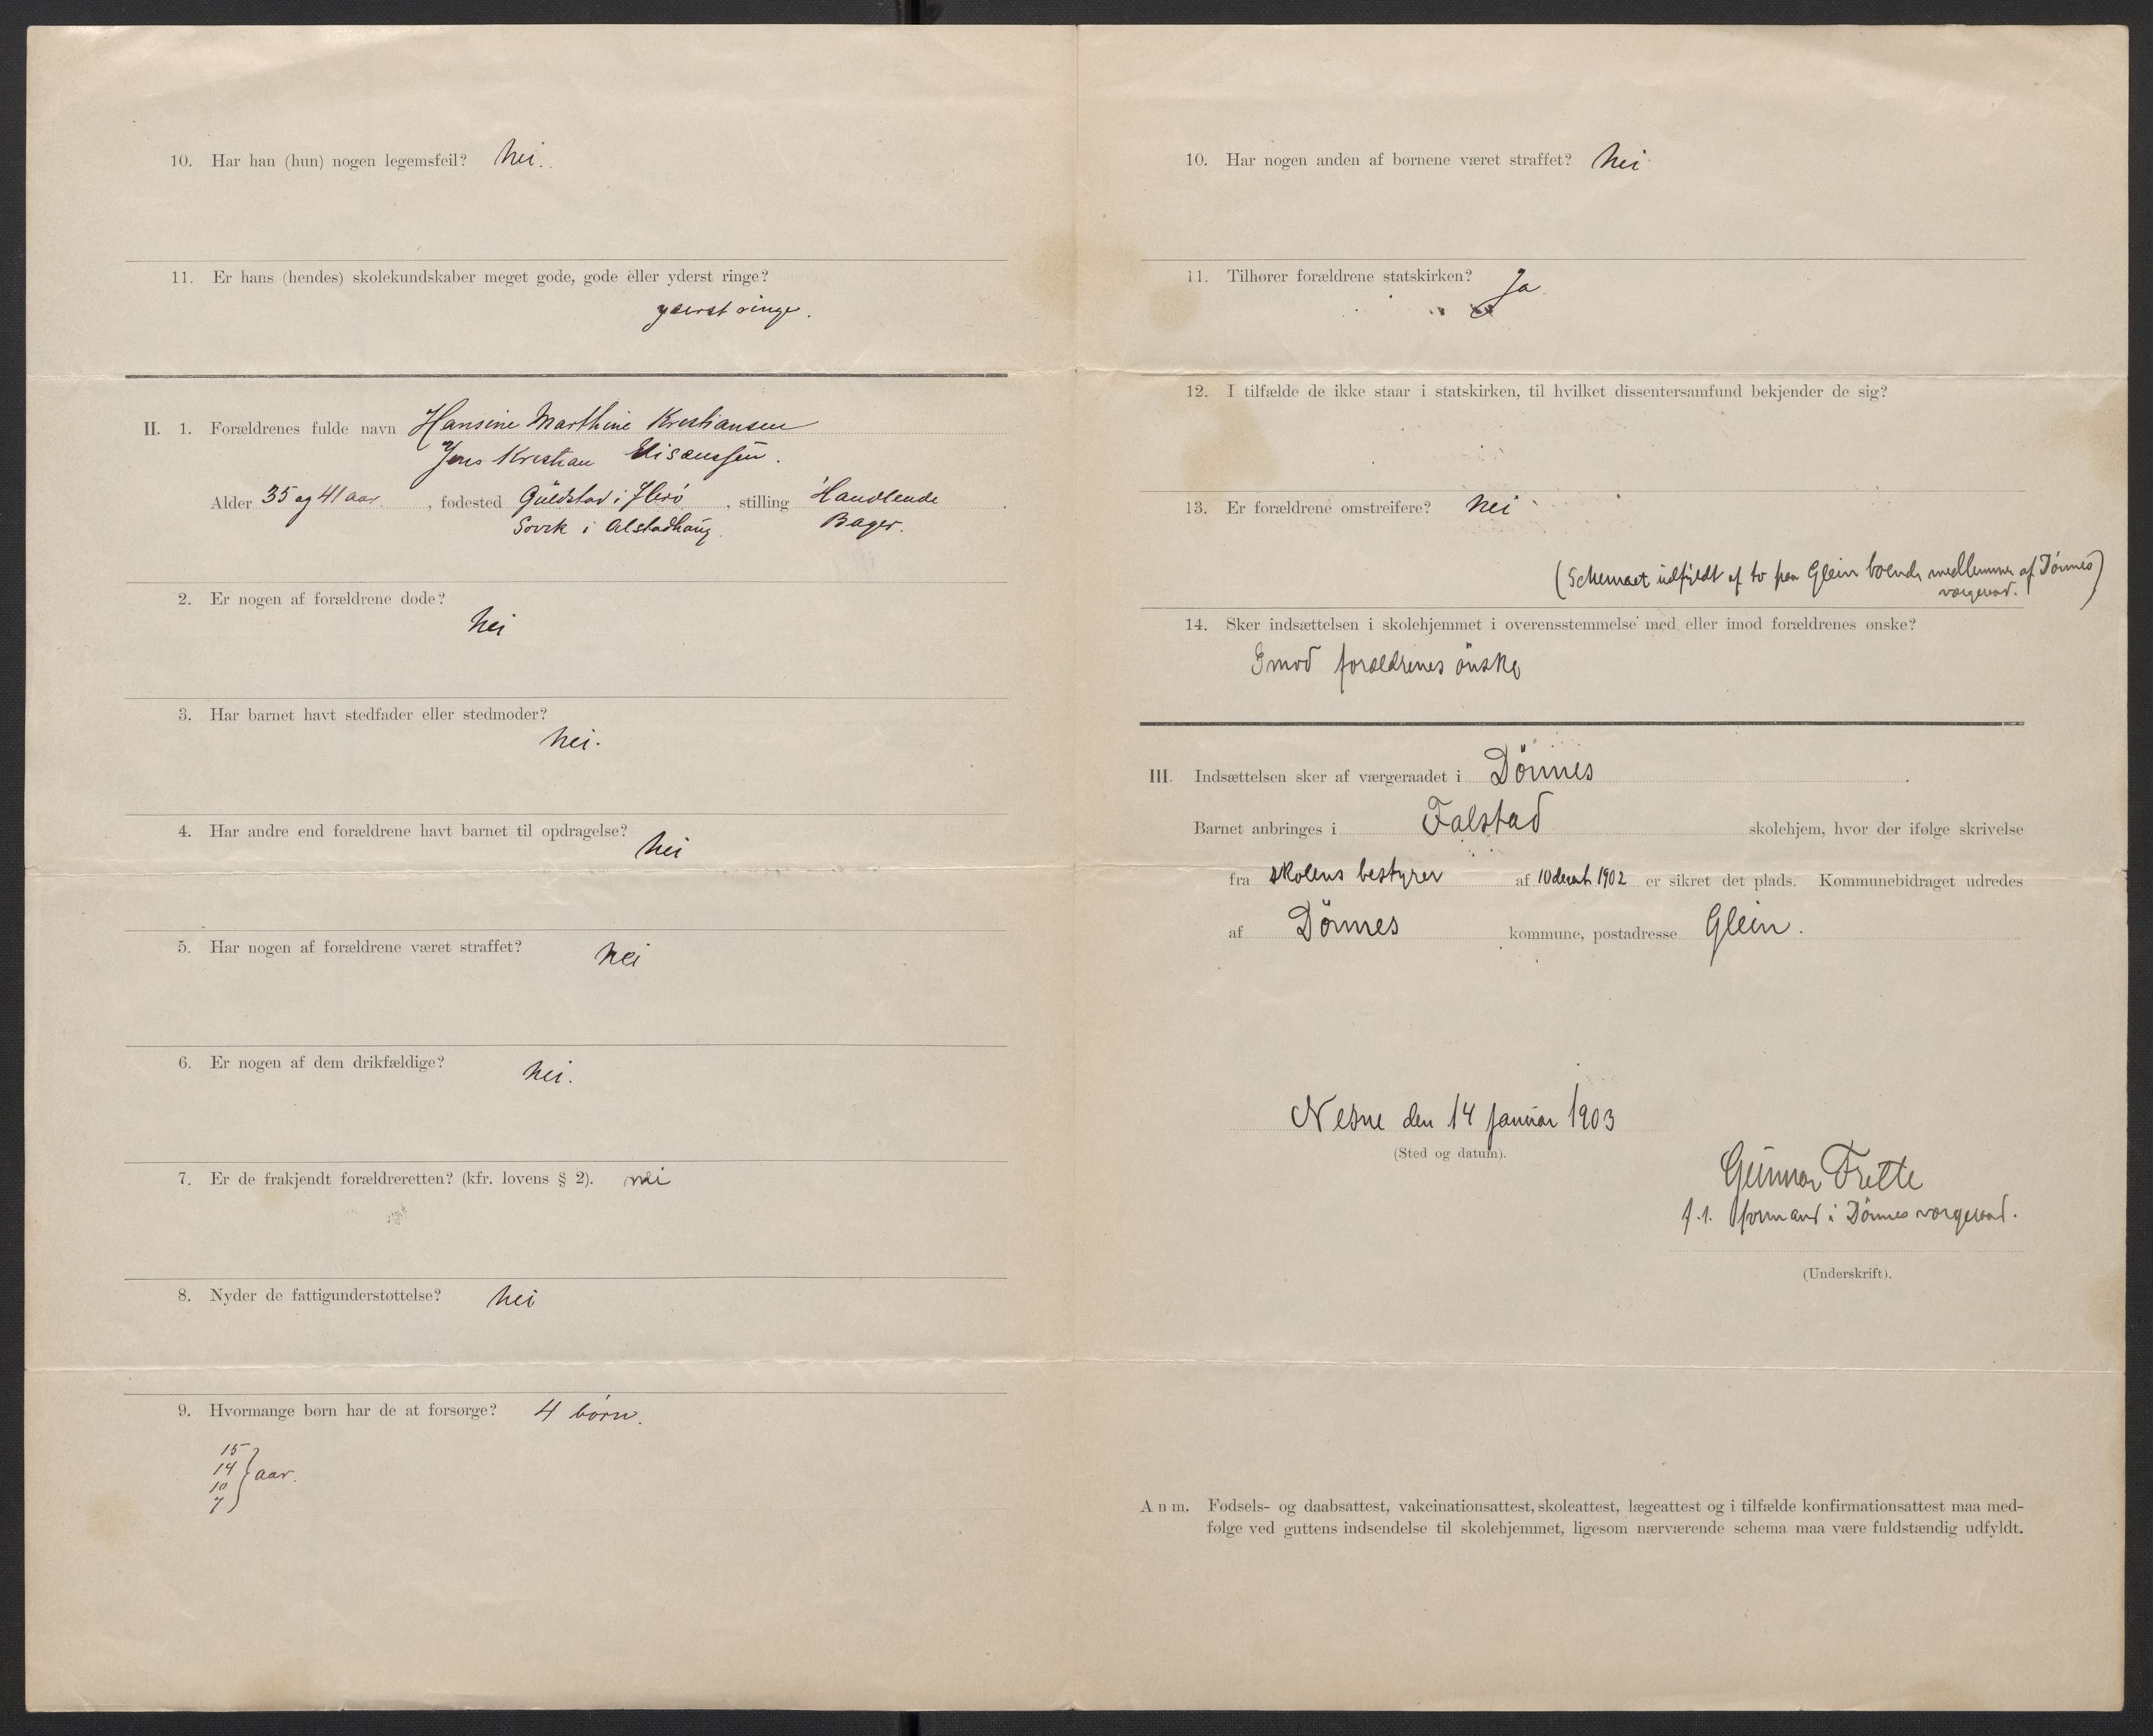 10. Har han (hun) nogen legemsfeil? Nei.
11. Er hans (hendes) skolekundskaber meget gode, gode eller yderst ringe?
yderst ringe.
II. 1. Forældrenes fulde navn Hansine Marthine Kristiansen
Jens Kristian
Alder 35 og 41 aar, fødested Guldstad i Herö, stilling Handlende
Sövik i Alstadhaug. Bager.
2. Er nogen af forældrene døde?
Nei
3. Har barnet havt stedfader eller stedmoder?
Nei.
4. Har andre end forældrene havt barnet til opdragelse?
Nei
5. Har nogen af forældrene været straffet? Nei
6. Er nogen af dem drikfældige? Nei.
7. Er de frakjendt forældreretten? (kfr. lovens § 2). nei
8. Nyder de fattigunderstøttelse? Nei
9. Hvormange børn har de at forsørge? 4 börn.
15
14 } aar.
10
7
10. Har nogen anden af børnene været straffet? Nei
11. Tilhører forældrene statskirken? Ja
12. I tilfælde de ikke staar i statskirken, til hvilket dissentersamfund bekjender de sig?
13. Er forældrene omstreifere? Nei
(Schemaet udfyldt af to paa Glein boende medlemmer af Dönnes
værgeraad.)
14. Sker indsættelsen i skolehjemmet i overensstemmelse med eller imod forældrenes ønske?
Imod forældrenes önske
III. Indsættelsen sker af værgeraadet i Dönnes.
Barnet anbringes i Falstad skolehjem, hvor der ifølge skrivelse
fra skolens bestyrer af 10 decbr. 1902 er sikret det plads. Kommunebidraget udredes
af Dönnes kommune, postadresse Glein.
Nesne den 14 januar 1903
(Sted og datum).
Gunnar Frette
f.t. formand i Dönnes værgeraad.
(Underskrift).
Anm. Fødsels- og daabsattest, vakcinationsattest, skoleattest, lægeattest og i tilfælde konfirmationsattest maa med-
følge ved guttens indsendelse til skolehjemmet, ligesom nærværende schema maa være fuldstændig udfyldt.